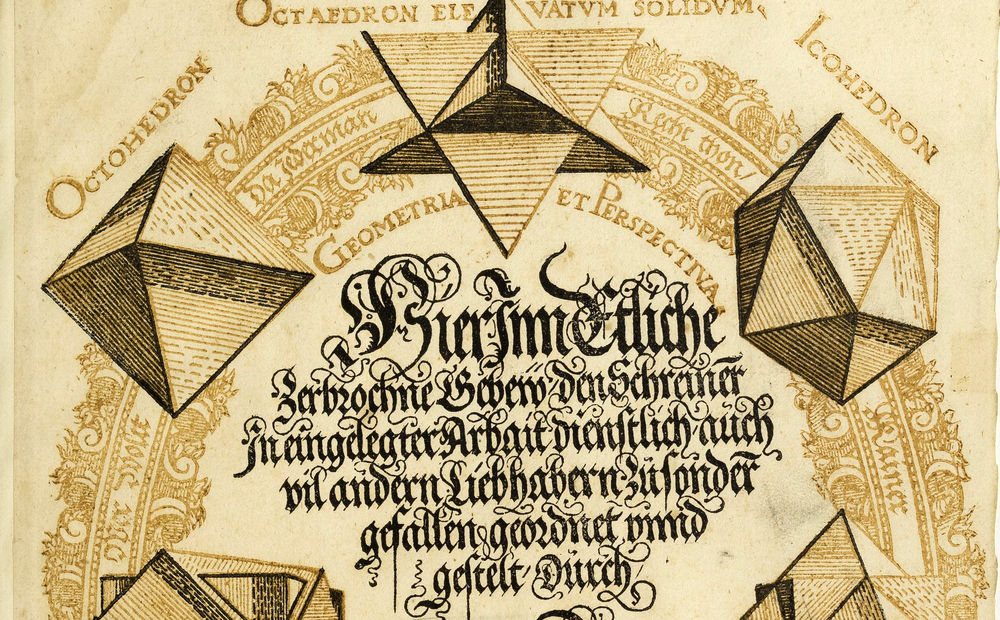 OCTAEDRON ELEVATVM SOLIDVM
OCTOHEDRON
ICOHEDRON
Da jederman
Recht thon
GEOMETRIA ET PERSPECTIVA
Hierjnn Etliche
Zerbrochne Gebew den Schreiner
Jn eingelegter Arbait dienstlich auch
vil andern Liebhabern Zü sonder
gefallen geordnet vnnd
gestelt Dürch
Diser Wolt
Kainer